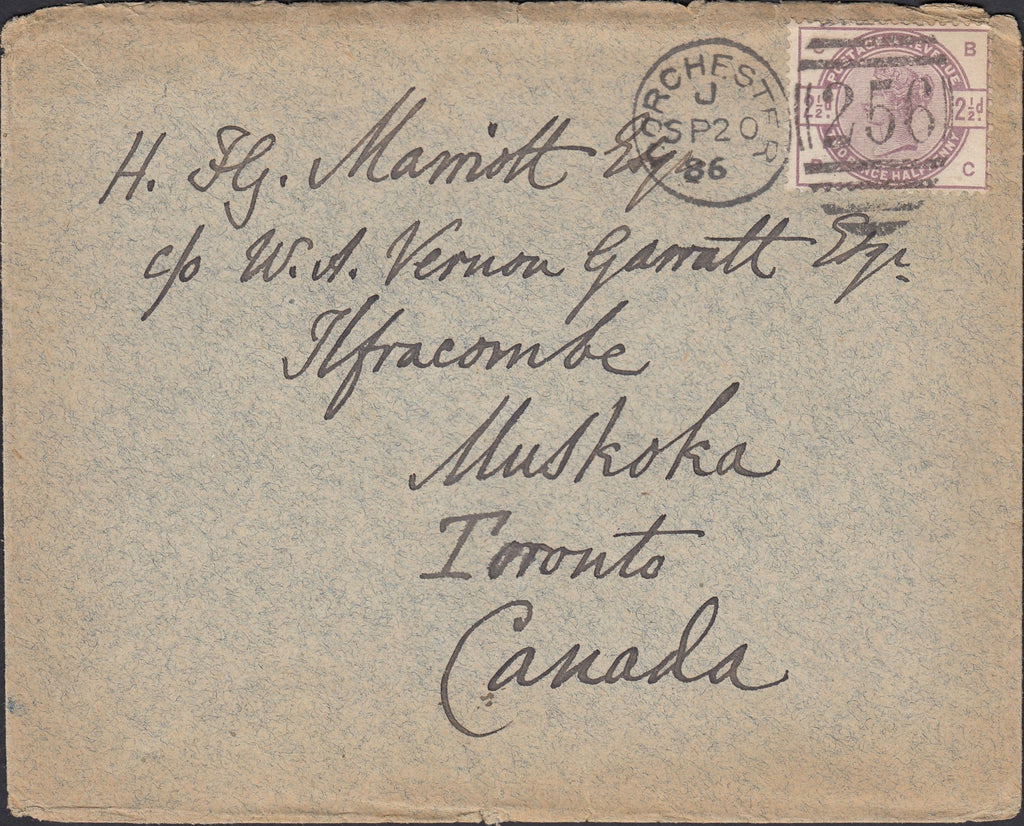 DORCHESTER
J
SP 20
86
256
POSTAGE & REVENUE
B
2½d.
2½d.
TWOPENCE HALFPENNY
C
H. Fg. Marriott Esq.
c/o W. A. Vernon Garratt Esq.
Ilfracombe
Muskoka
Toronto
Canada